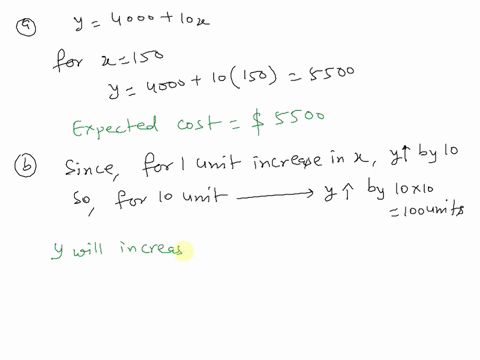 (a) y = 4000 + 10x
for x = 150
y = 4000 + 10(150) = 5500
Expected cost = $ 5500
(b) Since, for 1 unit increase in x, y↑ by 10
so, for 10 unit ⟶ y ↑ by 10×10
= 100 units
y will increas